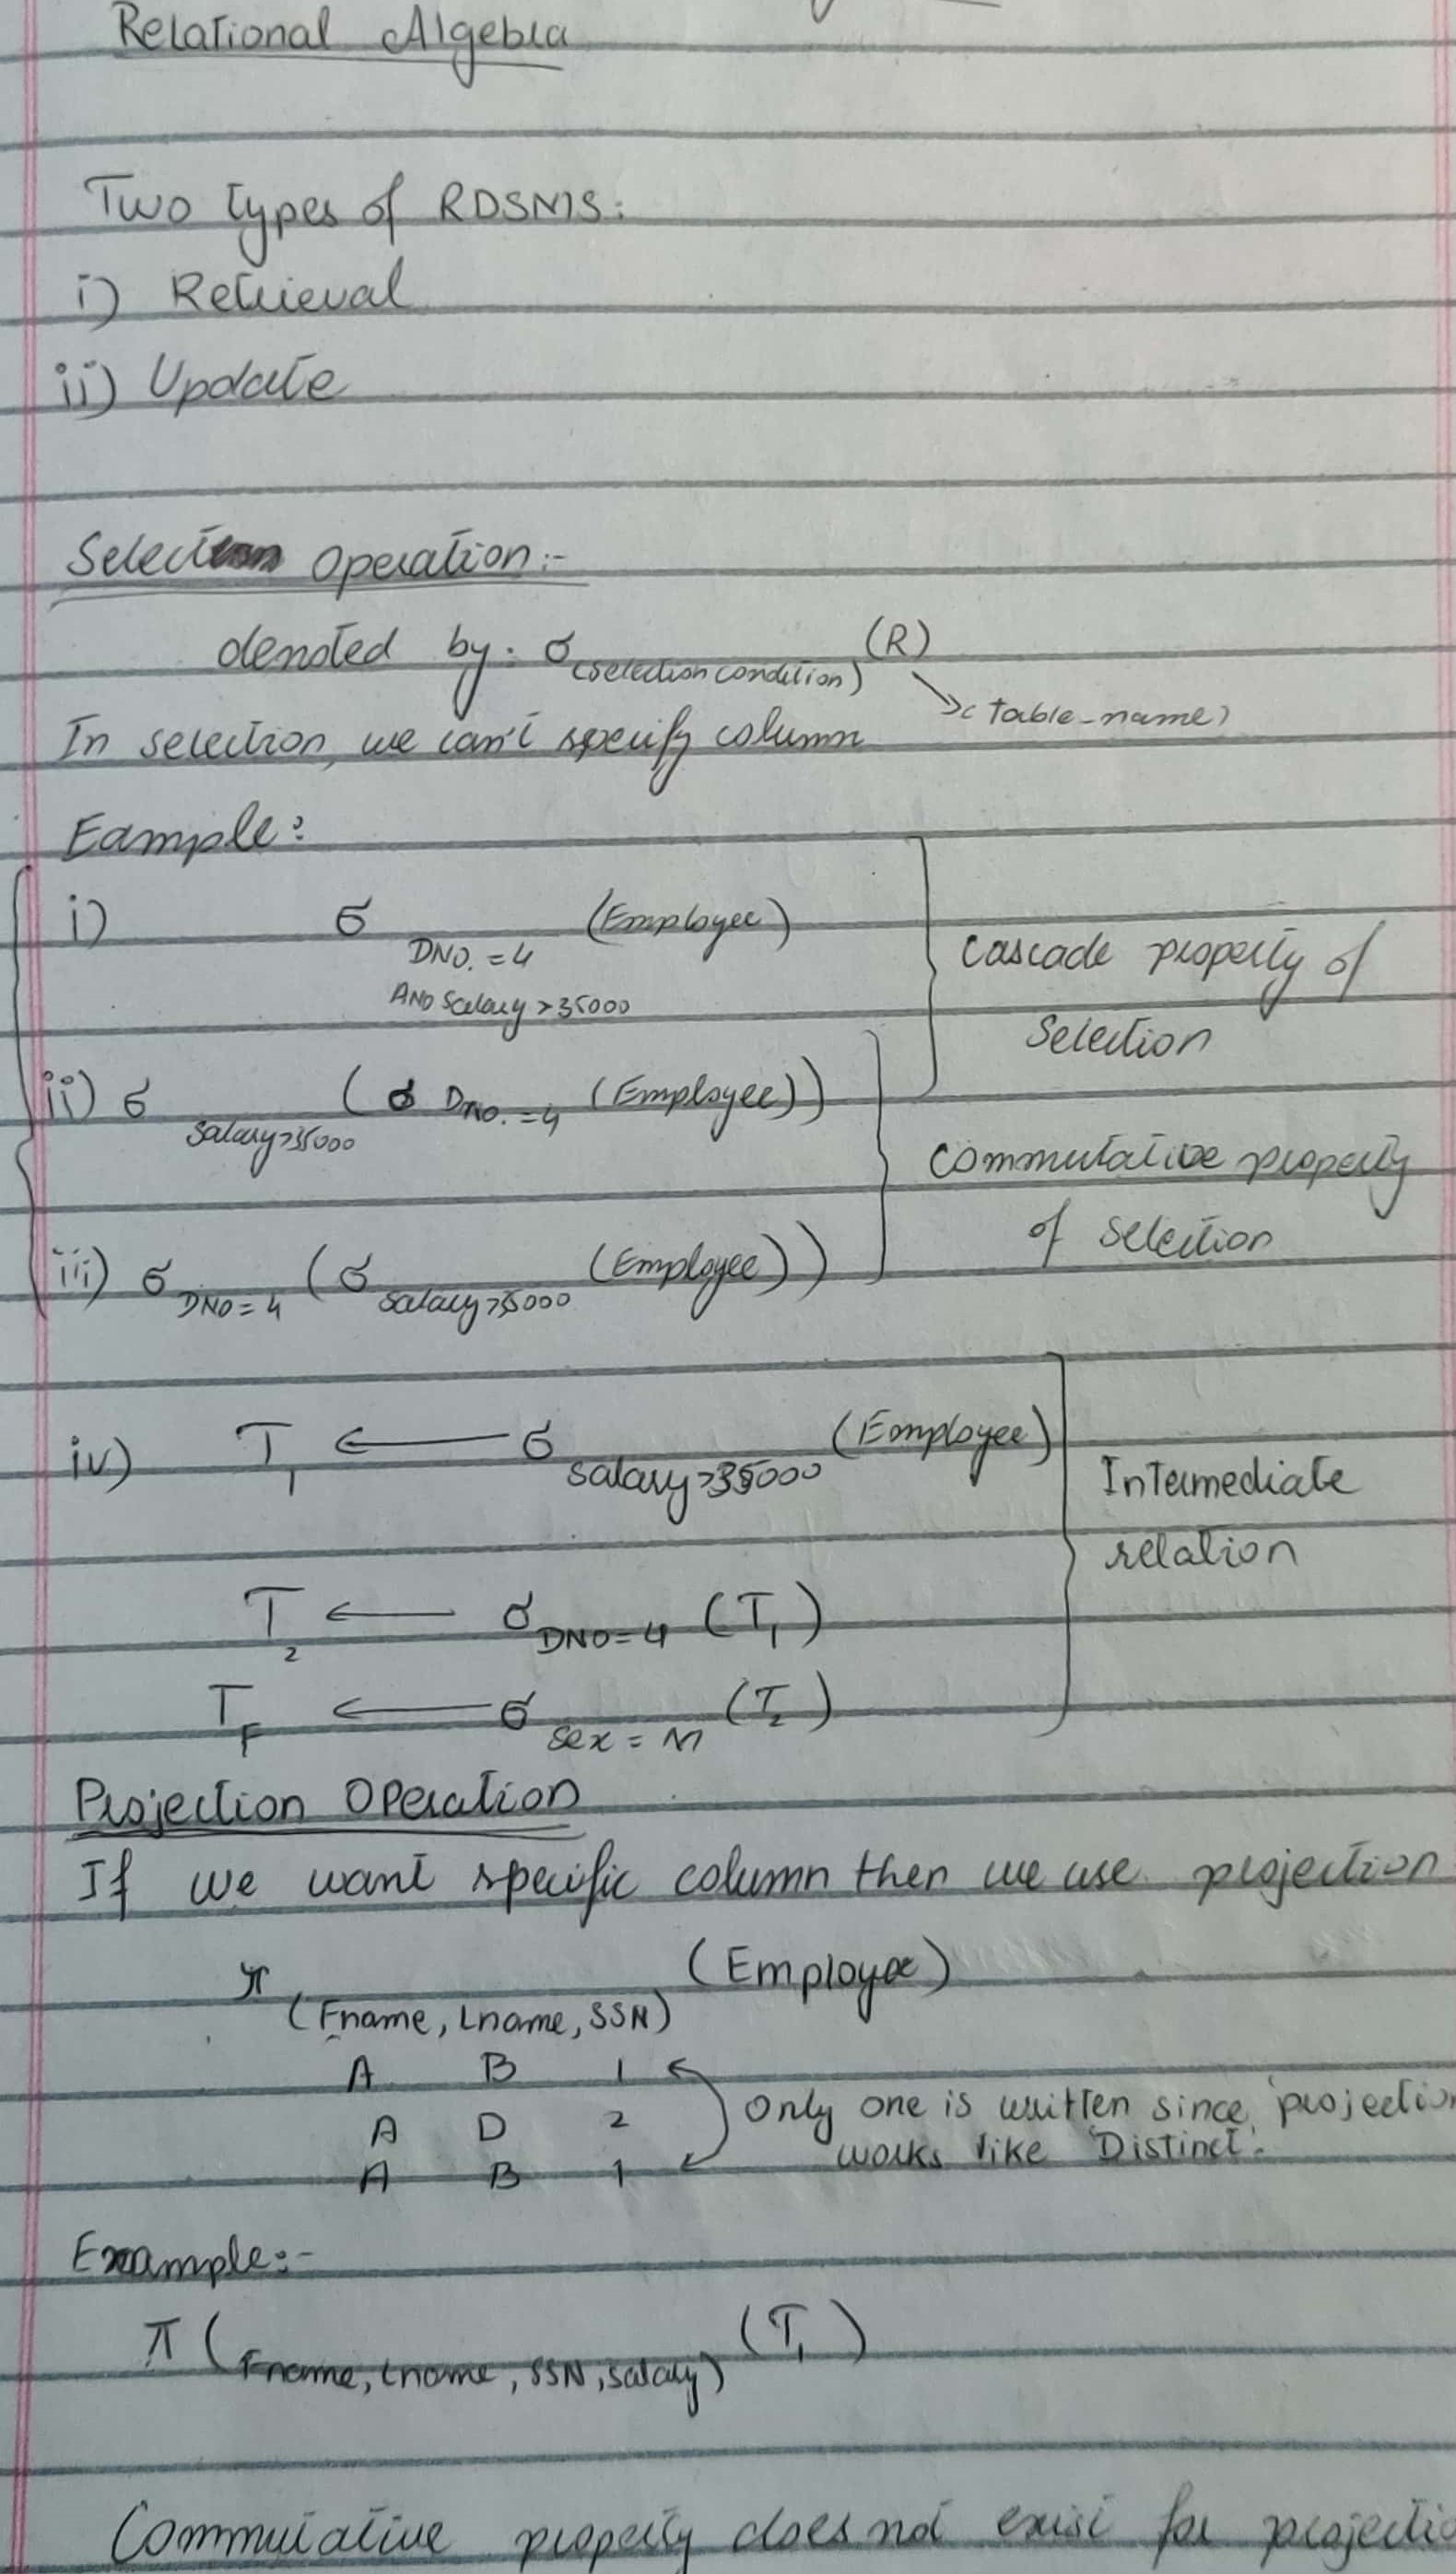 Relational Algebra
Two types of RDSMS:
i) Retrieval
ii) Update
Selection Operation:-
denoted by: σ (selection condition) (R)
→ (table_name)
In selection, we can't specify column
Eample:
i) σ DNO. = 4 AND Salary > 35000 (Employee)
Cascade property of
Selection
ii) σ Salary>35000 (σ DNO. = 4 (Employee))
Commutative property
of selection
iii) σ DNO = 4 (σ Salary>35000 (Employee))
iv) T1 ← σ Salary>35000 (Employee)
Intermediate
relation
T2 ← σ DNO=4 (T1)
TF ← σ Sex = M (T2)
Projection Operation
If we want specific column then we use projection
π (Fname, Lname, SSN) (Employee)
A B 1
A D 2
A B 1
Only one is written since projection
works like 'Distinct'.
Example:-
π (Fname, Lname, SSN, Salary) (T1)
Commutative property does not exist for projectio